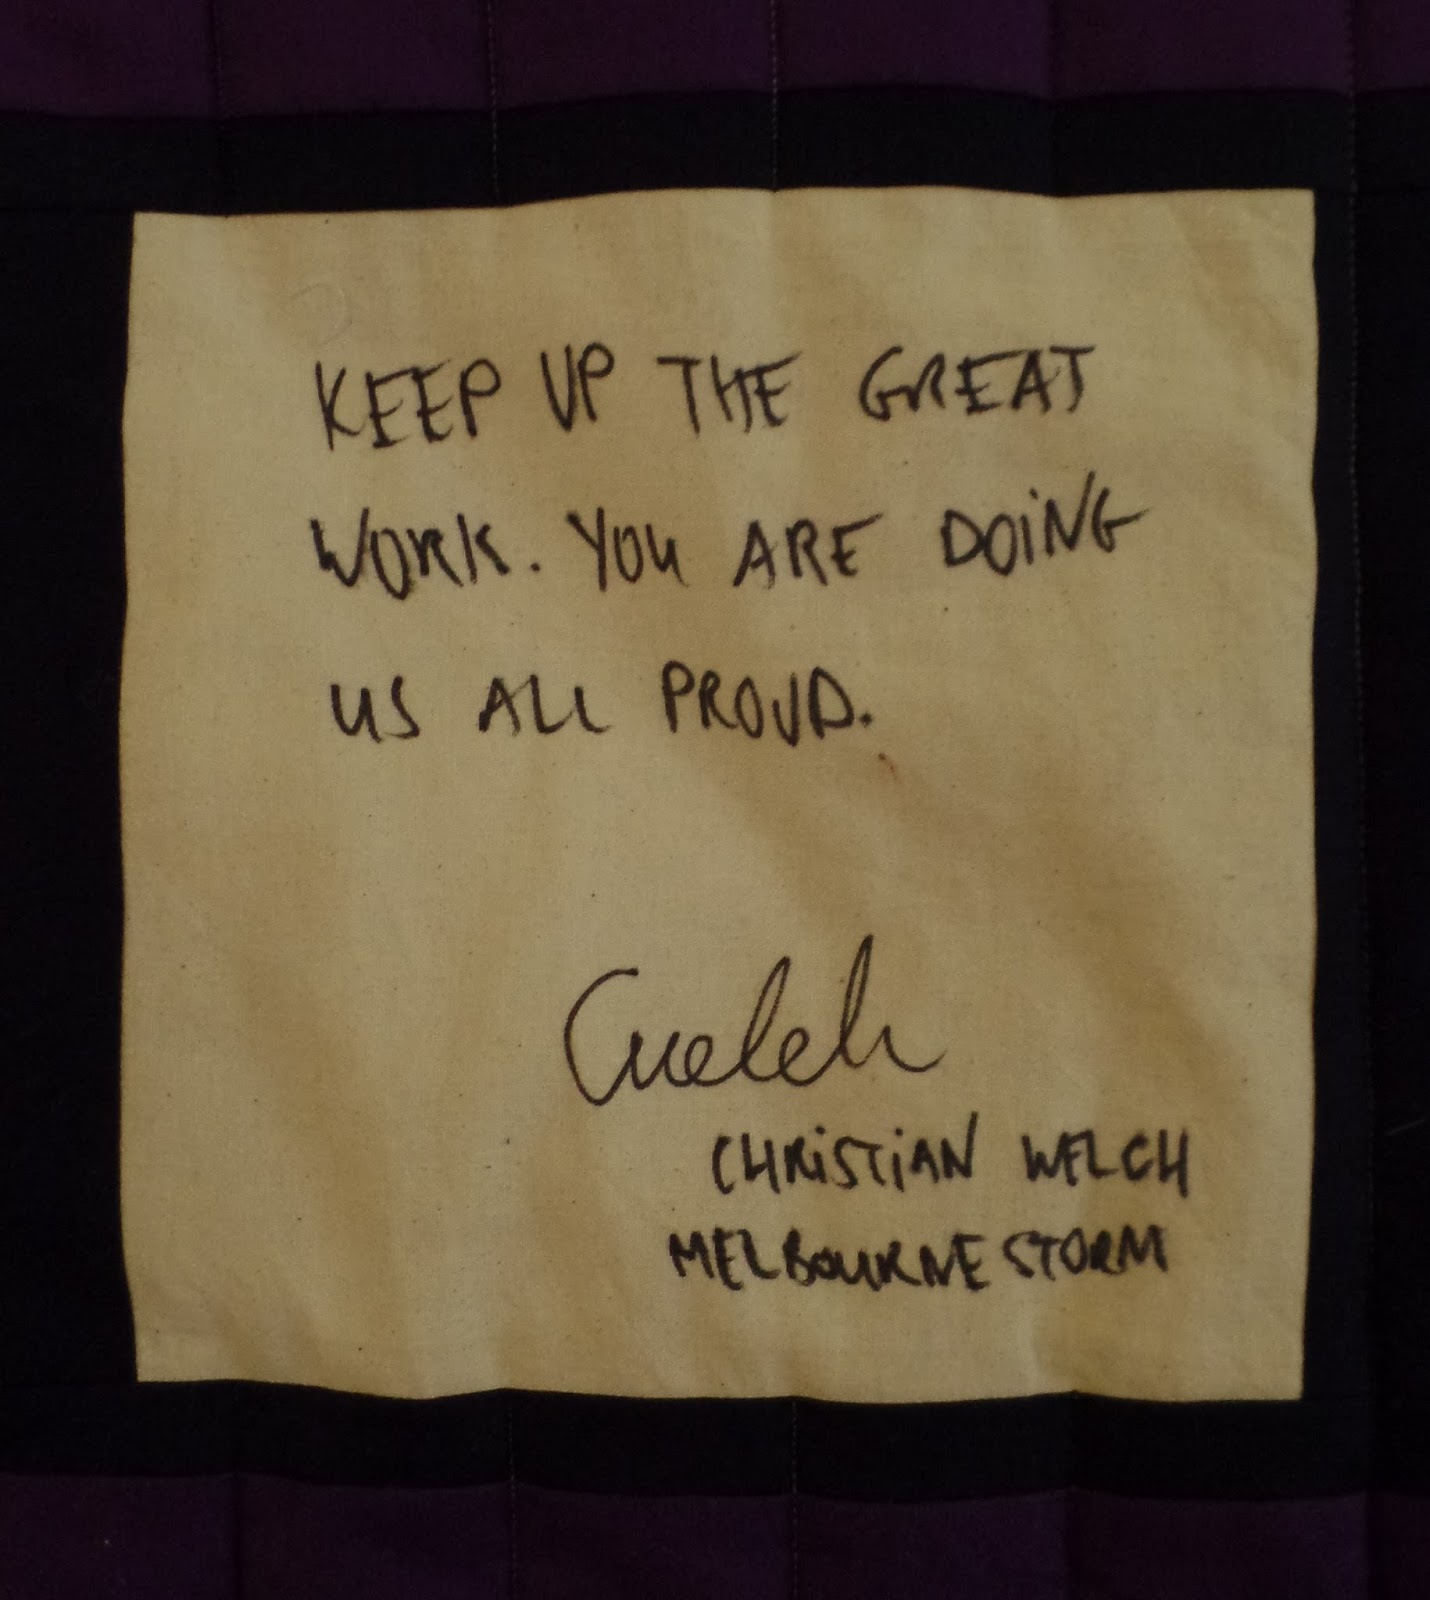 KEEP UP THE GREAT
WORK. YOU ARE DOING
US ALL PROUD.
Cwelch
CHRiSTiAN WELCH
MELBOURNE STORM